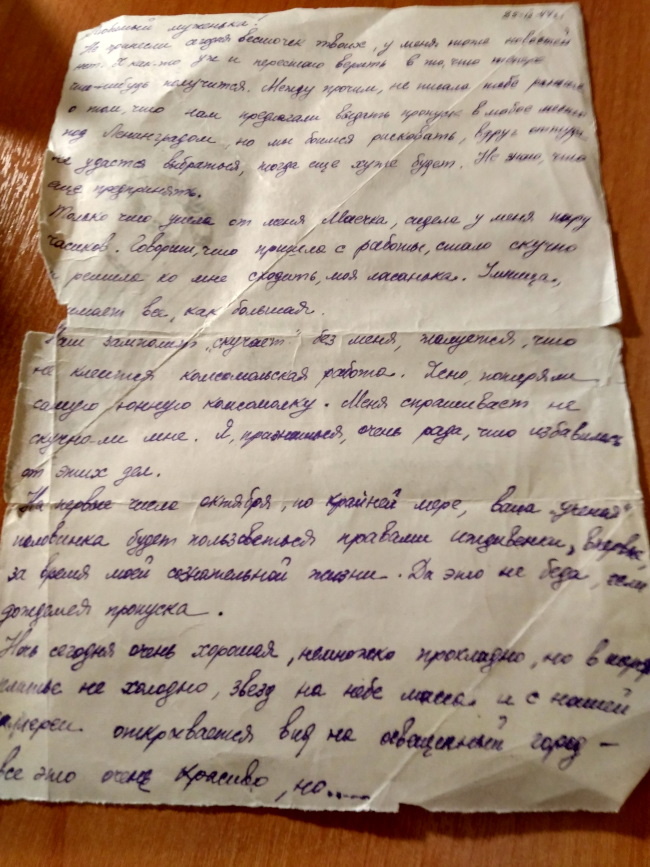 муженька!
Не принесли сегодня весточек твоих, у меня тоже новостей
нет. Я как-то уж и перестаю верить в то, что
что-нибудь получится. Между прочим, не писала тебе раньше
о том, что нам предлагали выдать пропуск в любое место
под Ленинградом, но мы боимся рисковать, вдруг оттуда
не удастся выбраться, тогда еще хуже будет. Не знаю, что
еще предпринять.
Только что ушла от меня Маечка, сидела у меня пару
часиков. Говорит, что пришла с работы, стало скучно
и решила ко мне сходить, моя ласанька. Умница,
все, как большая.
замполит „скучает" без меня, жалуется, что
не клеится комсомольская работа. Ясно, потеряли
самую юнную комсомолку. Меня спрашивает не
скучнали мне. Я, признаться, очень рада, что избавилась
от этих дел.
На первые числа октября, по крайней мере, ваша „ученая"
половинка будет пользоваться правами иждивенки, впервые
за время моей сознательной жизни. Да это не беда, если
дождемся пропуска.
Ночь сегодня очень хорошая, немножко прохладно, но в
платье не холодно, звезд на небе масса и с нашей
галереи открывается вид на освещенный город —
все это очень красиво, но.....